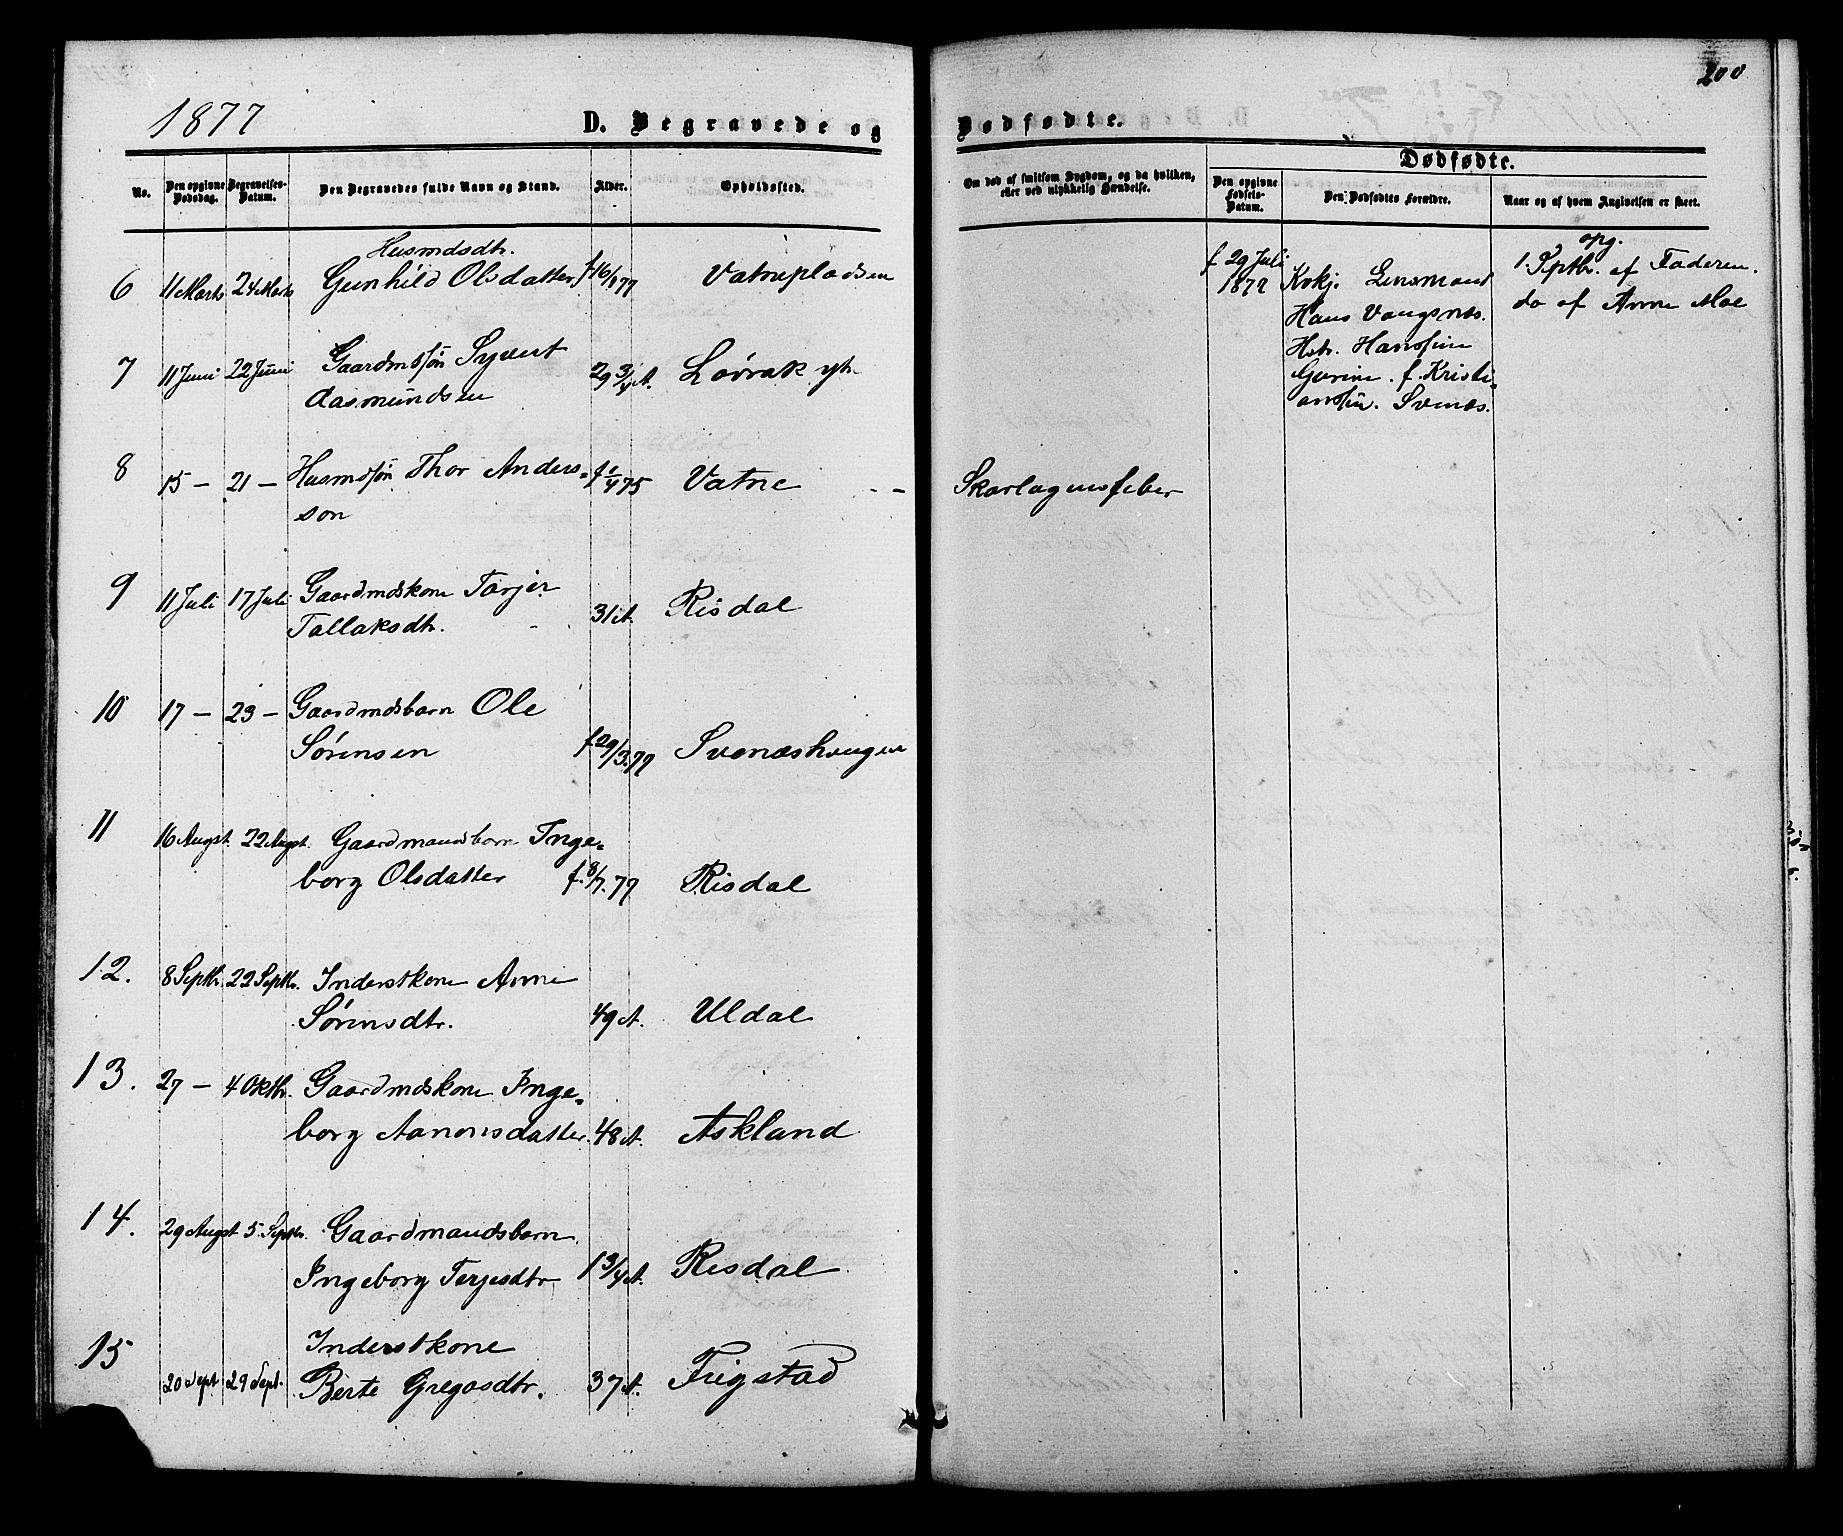 200
1877
D. Begravede og Dødfødte.
Dødfødte.
No.
Den opgivne Dødsdag.
Begravelses-Datum.
Den Begravedes fulde Navn og Stand.
Alder.
Opholdssted.
Om død af smitsom Sygdom, og da hvilken, eller ved ulykkelig Hændelse.
Den opgivne Fødsels-Datum.
Den Dødfødtes Forældre.
Naar og af hvem Angivelsen er skeet.
Husmdsdtr.
6 11 Marts 24 Marts Gunhild Olsdatter f 16/1 77 Vatnepladsen
7 11 Juni 22 Juni Gaardmdsøn Syvert
Aasmundsen 29 3/4 A. Løvrak yt.
8 15 – 21 – Husmdsøn Thor Anders-
son f 1/4 75 Vatne - - Skarlagensfeber
9 11 Juli 17 Juli Gaardmdskone Tarjer
Tallaksdtr. 31 A. Risdal
10 17 – 23 – Gaardmdsbarn Ole
Sørensen f 29/3. 77 Svenæs
11 16 Augst. 22 Augst. Gaardmandsbarn Inge-
borg Olsdatter f. 8/7. 77 Risdal
12. 8 Septbr. 22 Septbr. Inderstkone Anne
Sørensdtr. 49 A. Uldal
13. 27 – 4 Oktbr. Gaardmdskone Inge-
borg Aanonsdatter. 48 A. Askland
14. 29 Augst 5. Septbr. Gaardmandsbarn
Ingeborg Terjesdtr 1 3/4 A. Risdal
15 Inderstkone
20 Sept 29 Sept. Berte Gregasdtr. 37 A. Frigstad
f 29 Juli
1877
Kirkj. Lensmand
Hans Vangsnes.
Hstr. Hansine
Gurine. f. Kristi-
ansen. Svenæs.
opg.
1. Septbr. af Faderen.
do af Anne Moe